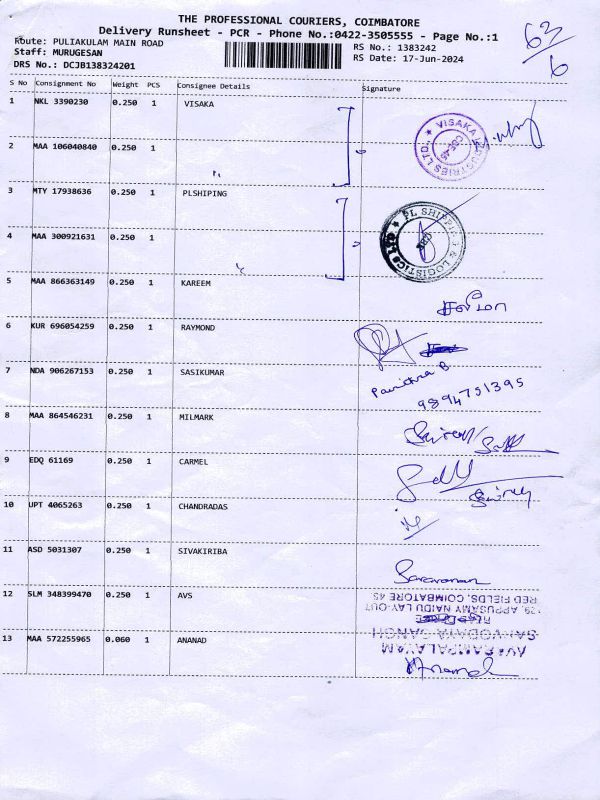 THE PROFESSIONAL COURIERS, COIMBATORE
Delivery Runsheet - PCR - Phone No.:0422-3505555 - Page No.:1
Route: PULIAKULAM MAIN ROAD RS No.: 1383242
Staff: MURUGESAN RS Date: 17-Jun-2024
DRS No.: DCJB138324201
63/6
S No Consignment No Weight PCS Consignee Details Signature
1 NKL 3390230 0.250 1 VISAKA
VISAKA INDUSTRIES LTD. CBE-45
2 MAA 106040840 0.250 1 "
3 MTY 17938636 0.250 1 PLSHIPING
PL SHIPPING & LOGISTICS LTD
4 MAA 300921631 0.250 1 "
5 MAA 866363149 0.250 1 KAREEM
6 KUR 696054259 0.250 1 RAYMOND
7 NDA 906267153 0.250 1 SASIKUMAR Pavithra B
9894751395
8 MAA 864546231 0.250 1 MILMARK
9 EDQ 61169 0.250 1 CARMEL
10 UPT 4065263 0.250 1 CHANDRADAS
11 ASD 5031307 0.250 1 SIVAKIRIBA
Saravanan
12 SLM 348399470 0.250 1 AVS
RED FIELDS, COIMBATORE 45
139, APPUSAMY NAIDU LAY-OUT
13 MAA 572255965 0.060 1 ANANAD
SARVODAYA SANGH
AVARAMPALAYAM
Anand